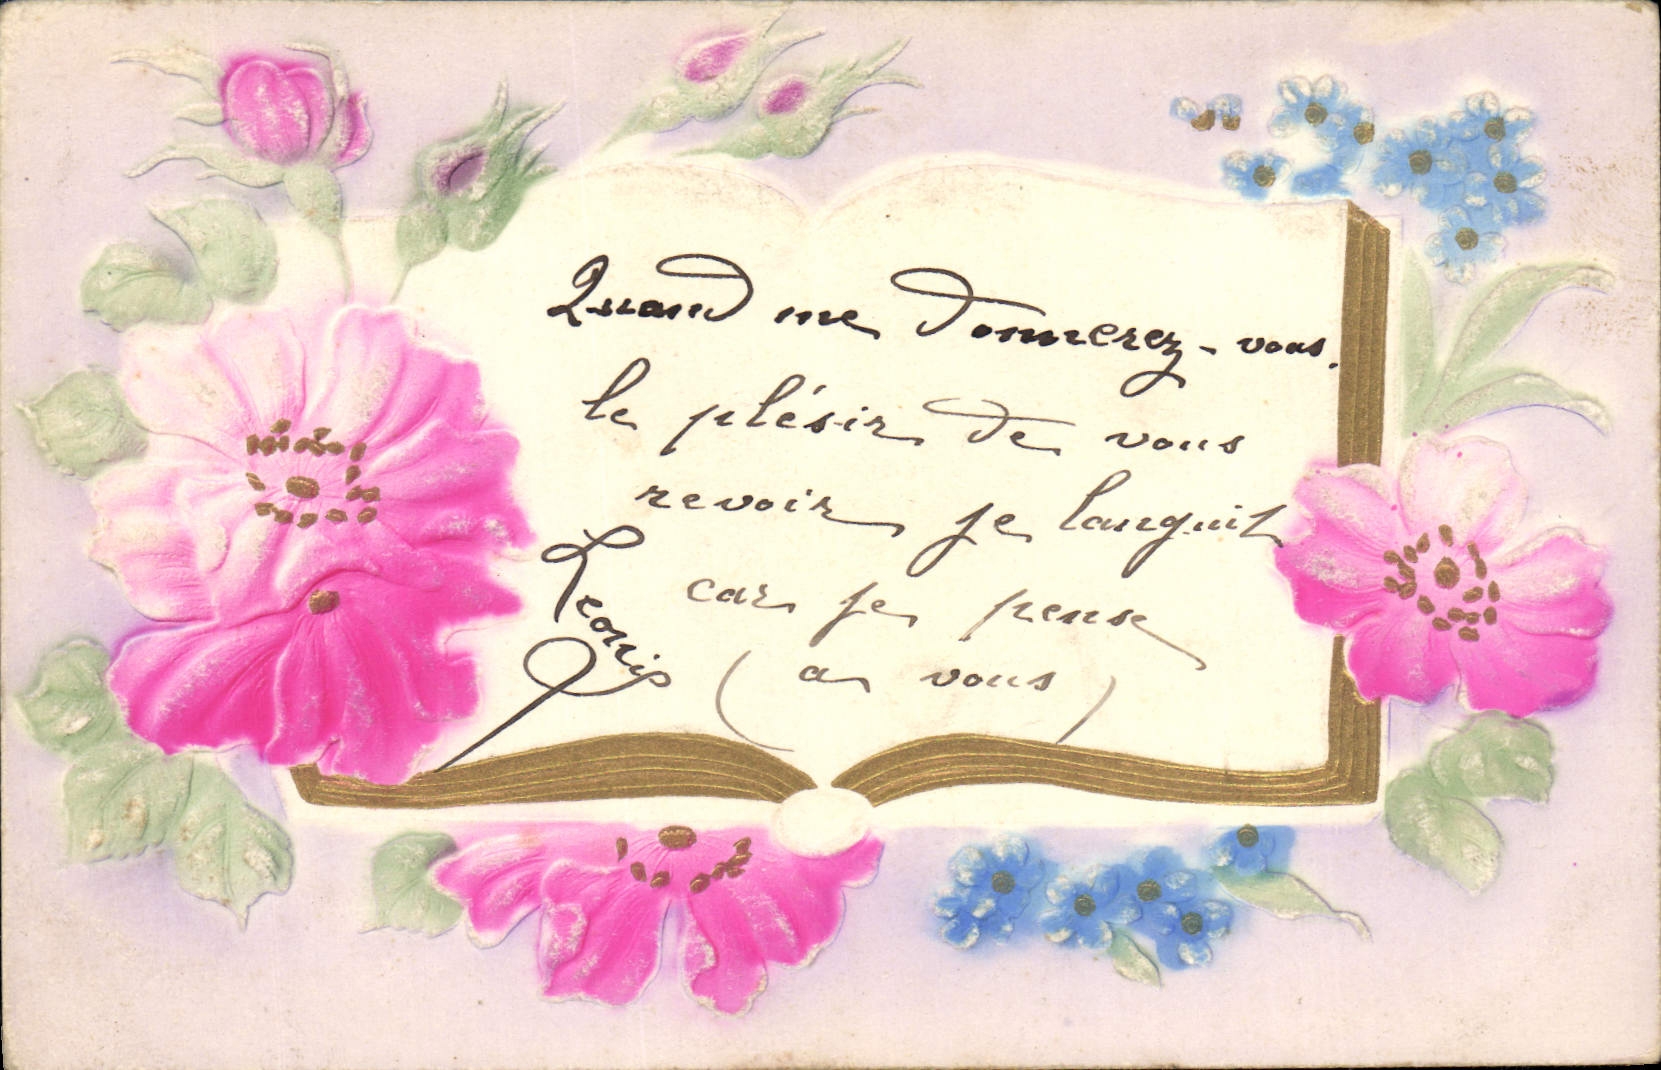 Quand me donnerez-vous.
le plésir de vous
revoir je languit
car je pense
(a vous)
Leonis